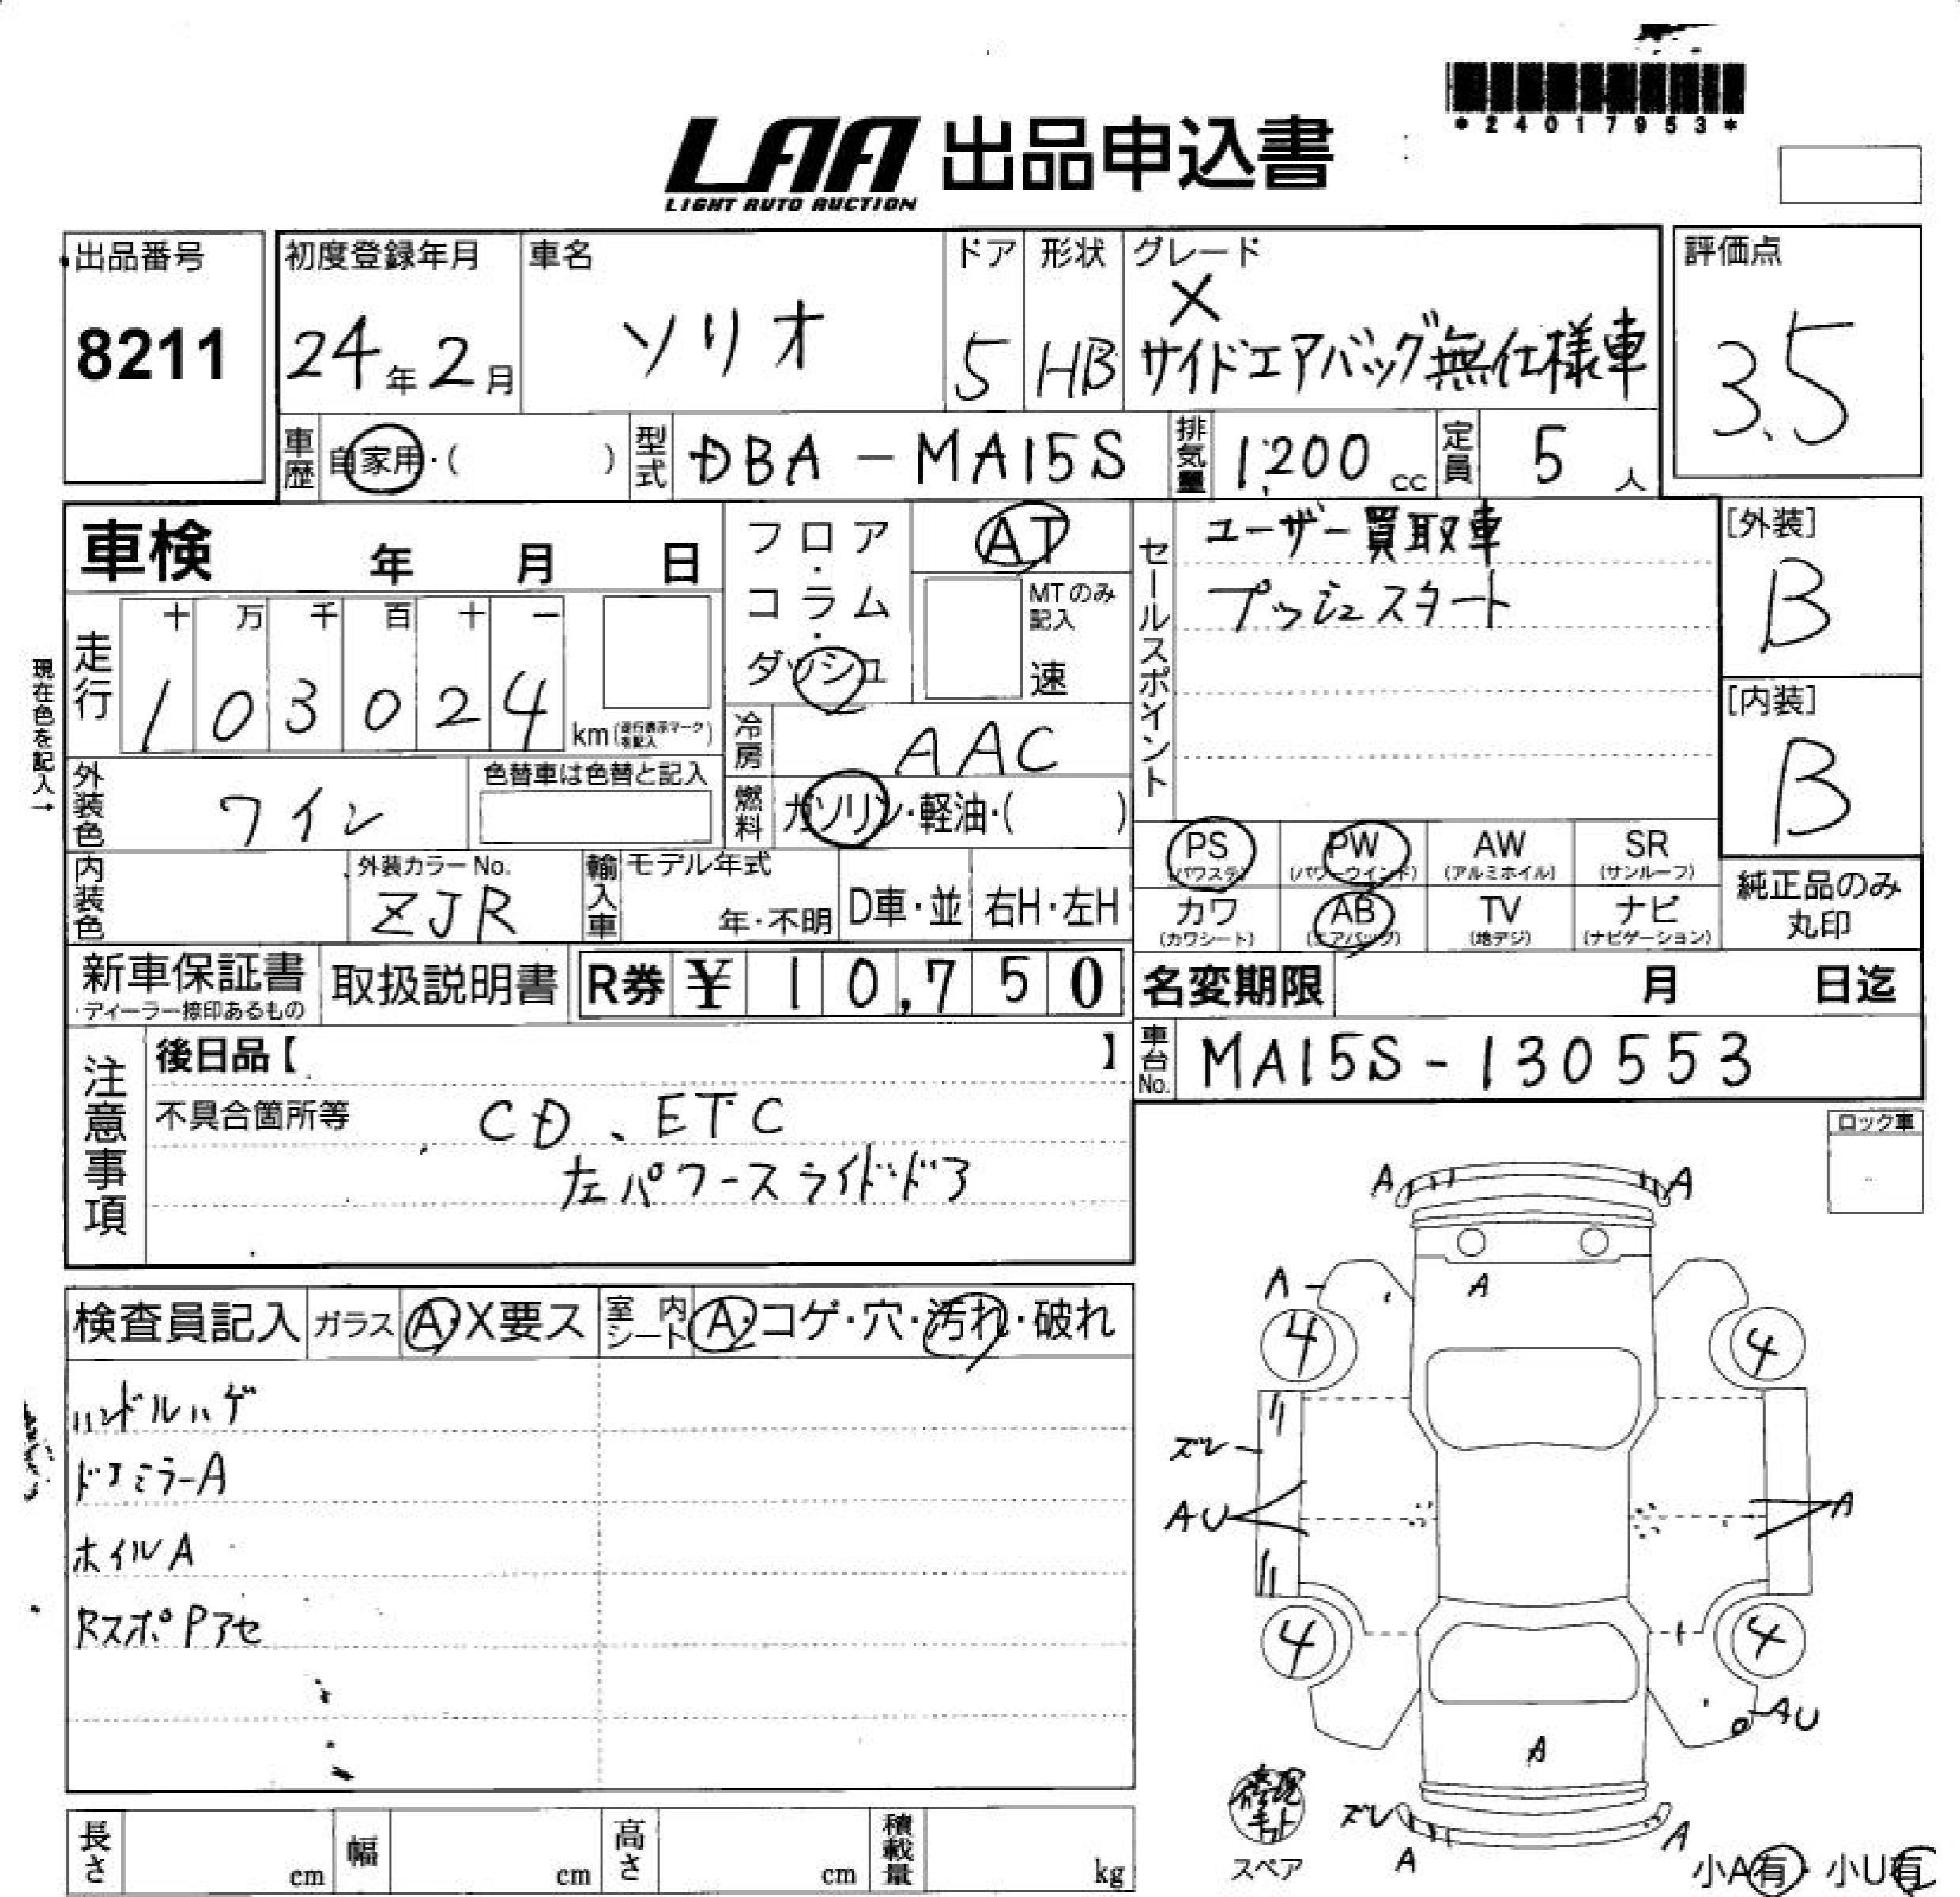 *24017953*
LAA 出品申込書
LIGHT AUTO AUCTION
出品番号
8211
初度登録年月
24年2月
車名
ソリオ
ドア
5
形状
HB
グレード
X
サイドエアバッグ無仕様車
評価点
3.5
車歴
自家用・( )
型式
DBA-MA15S
排気量
1,200 cc
定員
5 人
車検 年 月 日
現在色を記入→
走行
十 万 千 百 十 一
1 0 3 0 2 4
km(走行表示マークを記入)
フロア・コラム・ダッシュ
AT
MTのみ記入
速
冷房
AAC
燃料
ガソリン・軽油・( )
セールスポイント
ユーザー買取車
プッシュスタート
[外装]
B
[内装]
B
外装色
ワイン
色替車は色替と記入
内装色
外装カラーNo.
ZJR
輸入車
モデル年式
年・不明
D車・並
右H・左H
PS
(パワステ)
PW
(パワーウインド)
AW
(アルミホイル)
SR
(サンルーフ)
カワ
(カワシート)
AB
(エアバッグ)
TV
(地デジ)
ナビ
(ナビゲーション)
純正品のみ
丸印
新車保証書
・ディーラー捺印あるもの
取扱説明書
R券 ¥ 10,750
名変期限 月 日迄
車台No.
MA15S-130553
注意事項
後日品【 】
不具合箇所等
CD、ETC
左パワースライドドア
ロック車
検査員記入
ガラス
A・X要ス
室内シート
A・コゲ・穴・汚れ・破れ
ハンドルハゲ
ドアミラーA
ホイルA
RスポPアセ
A
A
A
A
4
4
ズレ
AU
A
4
4
AU
A
ズレ
A
A
修理キット
スペア
小A有・小U有
長さ cm
幅 cm
高さ cm
積載量 kg